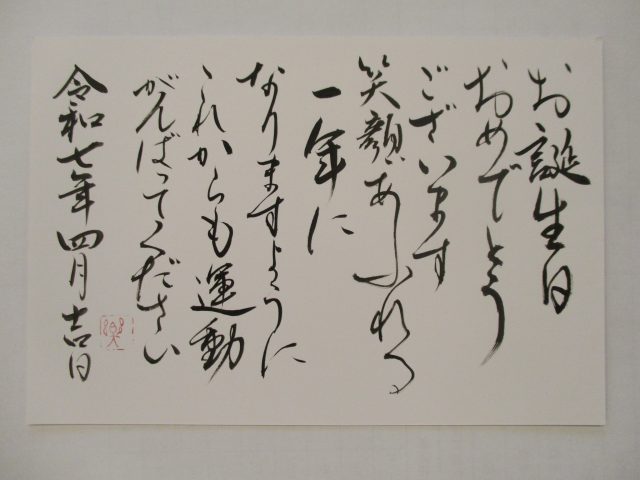 お誕生日
おめでとう
ございます
笑顔あふれる
一年に
なりますように
これからも運動
がんばってください
令和七年四月吉日